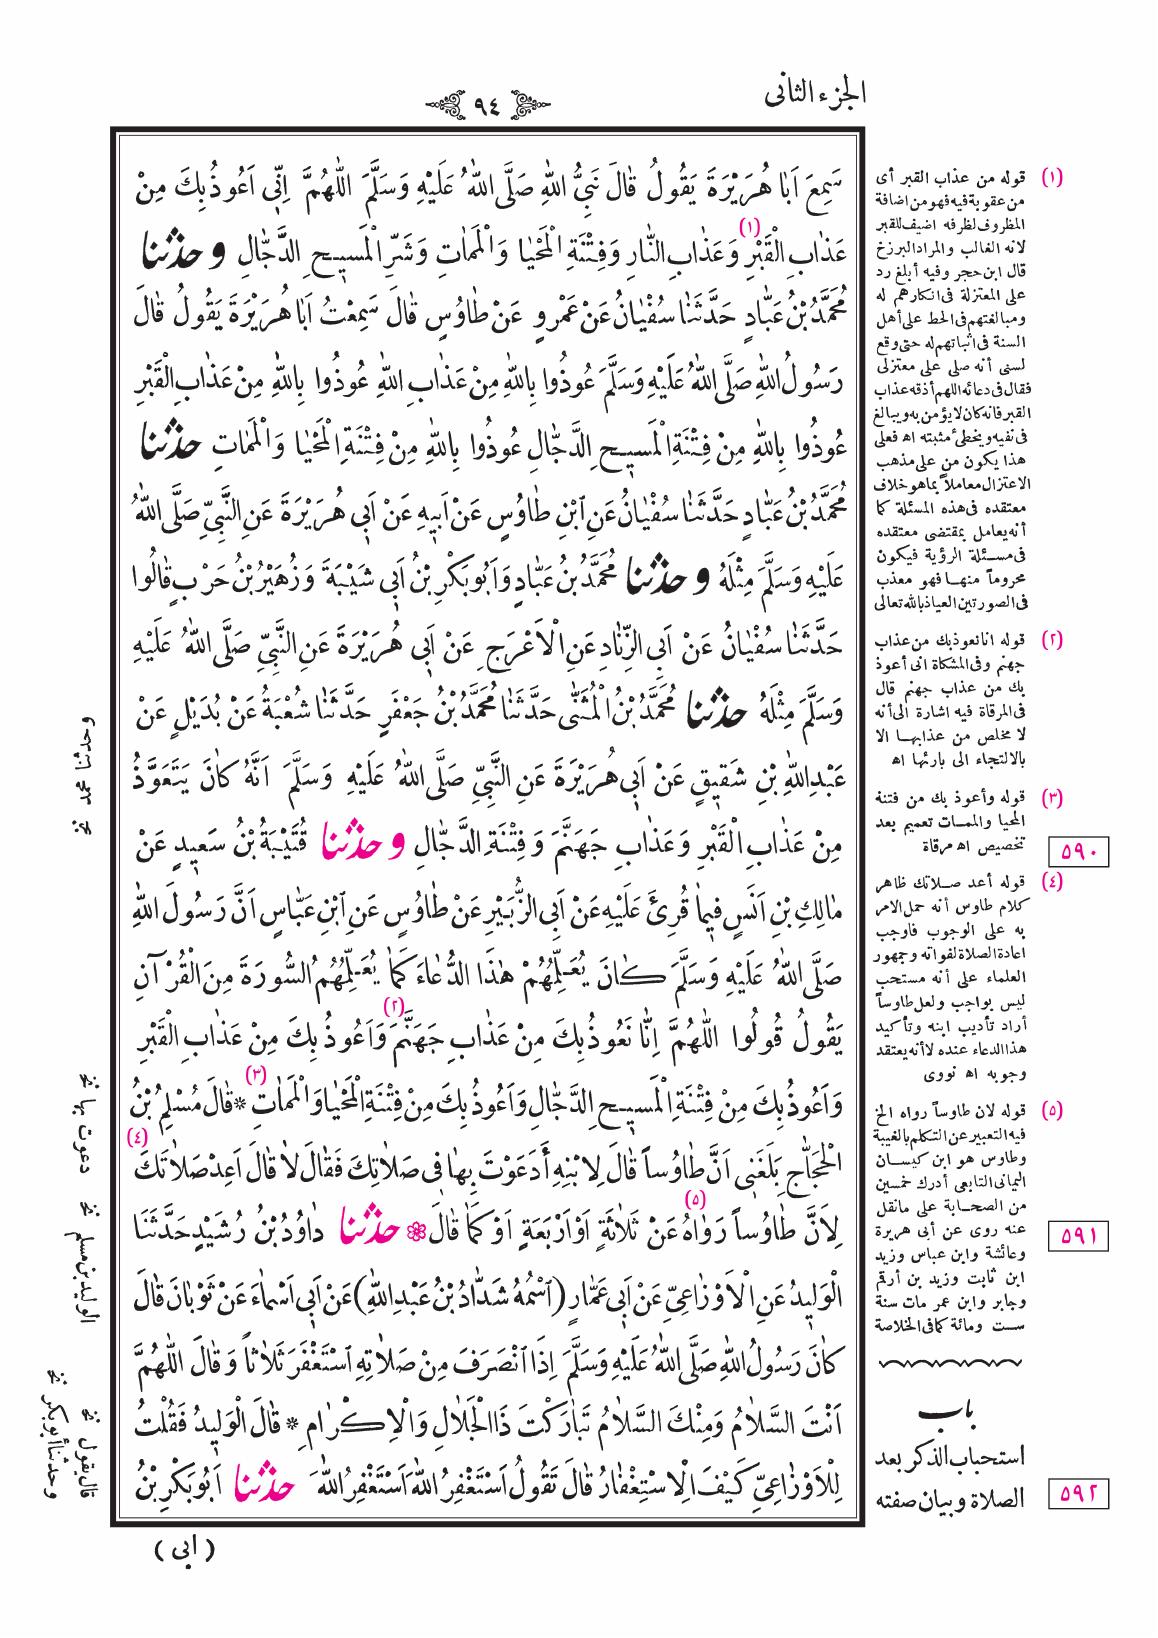 الجزء الثانى
٩٤
سَمِعَ اَبَا هُرَيْرَةَ يَقُولُ قَالَ نَبِيُّ اللهِ صَلَّى اللهُ عَلَيْهِ وَسَلَّمَ اَللّٰهُمَّ اِنِّى اَعُوذُ بِكَ مِنْ
عَذَابِ الْقَبْرِ (١) وَعَذَابِ النَّارِ وَفِتْنَةِ الْمَحْيَا وَالْمَمَاتِ وَشَرِّ الْمَسيحِ الدَّجَّالِ و حدثنا
مُحَمَّدُ بْنُ عَبَّادٍ حَدَّثَنَا سُفْيَانُ عَنْ عَمْرٍو عَنْ طَاوُسٍ قَالَ سَمِعْتُ اَبَا هُرَيْرَةَ يَقُولُ قَالَ
رَسُولُ اللهِ صَلَّى اللهُ عَلَيْهِ وَسَلَّمَ عُوذُوا بِاللهِ مِنْ عَذَابِ اللهِ عُوذُوا بِاللهِ مِنْ عَذَابِ الْقَبْرِ
عُوذُوا بِاللهِ مِنْ فِتْنَةِ الْمَسيحِ الدَّجَّالِ عُوذُوا بِاللهِ مِنْ فِتْنَةِ الْمَحْيَا وَالْمَمَاتِ حدثنا
مُحَمَّدُ بْنُ عَبَّادٍ حَدَّثَنَا سُفْيَانُ عَنِ ابْنِ طَاوُسٍ عَنْ اَبيهِ عَنْ اَبِى هُرَيْرَةَ عَنِ النَّبِىِّ صَلَّى اللهُ
عَلَيْهِ وَسَلَّمَ مِثْلَهُ و حدثنا مُحَمَّدُ بْنُ عَبَّادٍ وَاَبُو بَكْرِ بْنُ اَبِى شَيْبَةَ وَزُهَيْرُ بْنُ حَرْبٍ قَالُوا
حَدَّثَنَا سُفْيَانُ عَنْ اَبِى الزِّنَادِ عَنِ الْاَعْرَجِ عَنْ اَبِى هُرَيْرَةَ عَنِ النَّبِىِّ صَلَّى اللهُ عَلَيْهِ
وَسَلَّمَ مِثْلَهُ حدثنا مُحَمَّدُ بْنُ الْمُثَنَّى حَدَّثَنَا مُحَمَّدُ بْنُ جَعْفَرٍ حَدَّثَنَا شُعْبَةُ عَنْ بُدَيْلٍ عَنْ
عَبْدِ اللهِ بْنِ شَقيقٍ عَنْ اَبِى هُرَيْرَةَ عَنِ النَّبِىِّ صَلَّى اللهُ عَلَيْهِ وَسَلَّمَ اَنَّهُ كَانَ يَتَعَوَّذُ
مِنْ عَذَابِ الْقَبْرِ وَعَذَابِ جَهَنَّمَ وَفِتْنَةِ الدَّجَّالِ و حدثنا قُتَيْبَةُ بْنُ سَعيدٍ عَنْ
مَالِكِ بْنِ اَنَسٍ فيمَا قُرِئَ عَلَيْهِ عَنْ اَبِى الزُّبَيْرِ عَنْ طَاوُسٍ عَنِ ابْنِ عَبَّاسٍ اَنَّ رَسُولَ اللهِ
صَلَّى اللهُ عَلَيْهِ وَسَلَّمَ كَانَ يُعَلِّمُهُمْ هٰذَا الدُّعَاءَ كَمَا يُعَلِّمُهُمُ السُّورَةَ مِنَ الْقُرْآنِ
يَقُولُ قُولُوا اَللّٰهُمَّ اِنَّا نَعُوذُ بِكَ مِنْ عَذَابِ جَهَنَّمَ (٢) وَاَعُوذُ بِكَ مِنْ عَذَابِ الْقَبْرِ
وَاَعُوذُ بِكَ مِنْ فِتْنَةِ الْمَسيحِ الدَّجَّالِ وَاَعُوذُ بِكَ مِنْ فِتْنَةِ الْمَحْيَا وَالْمَمَاتِ (٣) * قَالَ مُسْلِمُ بْنُ
الْحَجَّاجِ بَلَغَنِى اَنَّ طَاوُساً قَالَ لِابْنِهِ أَدَعَوْتَ بِهَا فِى صَلَاتِكَ فَقَالَ لَا قَالَ اَعِدْ صَلَاتَكَ (٤)
لِاَنَّ طَاوُساً رَوَاهُ (٥) عَنْ ثَلَاثَةٍ اَوْ اَرْبَعَةٍ اَوْ كَمَا قَالَ ❀ حدثنا دَاوُدُ بْنُ رُشَيْدٍ حَدَّثَنَا
الْوَليدُ عَنِ الْاَوْزَاعِىِّ عَنْ اَبِى عَمَّارٍ (اسْمُهُ شَدَّادُ بْنُ عَبْدِ اللهِ) عَنْ اَبِى اَسْمَاءَ عَنْ ثَوْبَانَ قَالَ
كَانَ رَسُولُ اللهِ صَلَّى اللهُ عَلَيْهِ وَسَلَّمَ اِذَا انْصَرَفَ مِنْ صَلَاتِهِ اسْتَغْفَرَ ثَلَاثاً وَقَالَ اَللّٰهُمَّ
اَنْتَ السَّلَامُ وَمِنْكَ السَّلَامُ تَبَارَكْتَ ذَا الْجَلَالِ وَالْاِكْرَامِ * قَالَ الْوَليدُ فَقُلْتُ
لِلْاَوْزَاعِىِّ كَيْفَ الْاِسْتِغْفَارُ قَالَ تَقُولُ اَسْتَغْفِرُ اللهَ اَسْتَغْفِرُ اللهَ حدثنا اَبُو بَكْرِ بْنُ
( ابى )
(١) قوله من عذاب القبر أى
من عقوبة فيه فهو من اضافة
المظروف لظرفه اضيف للقبر
لانه الغالب والمراد البرزخ
قال ابن حجر وفيه أبلغ رد
على المعتزلة فى انكارهم له
ومبالغتهم فى الحط على أهل
السنة فى اثباتهم له حتى وقع
لسنى أنه صلى على معتزلى
فقال فى دعائه اللهم أذقه عذاب
القبر فانه كان لا يؤمن به ويبالغ
فى نفيه ويخطئ مثبته اه فعلى
هذا يكون من على مذهب
الاعتزال معاملاً بما هو خلاف
معتقده فى هذه المسئلة كما
أنه يعامل بمقتضى معتقده
فى مسئلة الرؤية فيكون
محروماً منها فهو معذب
فى الصورتين العياذ بالله تعالى
(٢) قوله انا نعوذ بك من عذاب
جهنم وفى المشكاة انى أعوذ
بك من عذاب جهنم قال
فى المرقاة فيه اشارة الى أنه
لا مخلص من عذابها الا
بالالتجاء الى بارئها اه
(٣) قوله وأعوذ بك من فتنة
المحيا والممات تعميم بعد
تخصيص اه مرقاة
٥٩٠
(٤) قوله أعد صلاتك ظاهر
كلام طاوس أنه حمل الامر
به على الوجوب فاوجب
اعادة الصلاة لفواته وجمهور
العلماء على أنه مستحب
ليس بواجب ولعل طاوساً
أراد تأديب ابنه وتأكيد
هذا الدعاء عنده لا أنه يعتقد
وجوبه اه نووى
(٥) قوله لان طاوساً رواه الخ
فيه التعبير عن التكلم بالغيبة
وطاوس هو ابن كيسان
اليمانى التابعى أدرك خمسين
من الصحابة على مانقل
عنه روى عن أبى هريرة
وعائشة وابن عباس وزيد
ابن ثابت وزيد بن أرقم
وجابر وابن عمر مات سنة
ست ومائة كما فى الخلاصة
٥٩١
باب
استحباب الذكر بعد
الصلاة وبيان صفته
٥٩٢
وحدثنا محمد نخ
دعوت بها نخ
الوليد بن مسلم نخ
قال يقول نخ
وحدثنا أبو بكر نخ